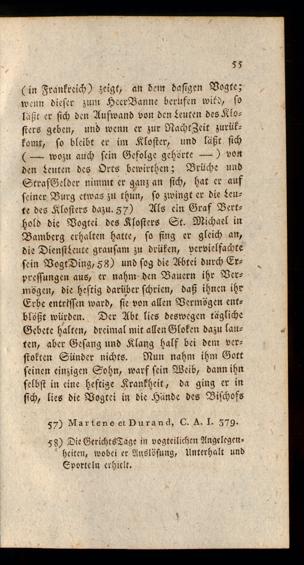 55
(in Frankreich) zeigt, an dem dasigen Vogte;
wenn dieser zum HeerBanne berufen wird, so
läßt er sich den Aufwand von den Leuten des Klo-
sters geben, und wenn er zur NachtZeit zurük-
komt, so bleibt er im Kloster, und läßt sich
(— wozu auch sein Gefolge gehörte —) von
den Leuten des Orts bewirthen; Brüche und
StrafGelder nimmt er ganz an sich, hat er auf
seiner Burg etwas zu thun, so zwingt er die Leu-
te des Klosters dazu. 57) Als ein Graf Bert-
hold die Vogtei des Klosters St. Michael in
Bamberg erhalten hatte, so fing er gleich an,
die DienstLeute grausam zu drüken, vervielfachte
sein VogtDing, 58) und sog die Abtei durch Er-
pressungen aus, er nahm den Bauern ihr Ver-
mögen, die heftig darüber schrien, daß ihnen ihr
Erbe entrissen ward, sie von allen Vermögen ent-
blößt würden. Der Abt lies deswegen tägliche
Gebete halten, dreimal mit allen Gloken dazu lau-
ten, aber Gesang und Klang half bei dem ver-
stokten Sünder nichts. Nun nahm ihm Gott
seinen einzigen Sohn, warf sein Weib, dann ihn
selbst in eine heftige Krankheit, da ging er in
sich, lies die Vogtei in die Hände des Bischofs
57) Martene et Durand, C. A. I. 379.
58) Die GerichtsTage in vogteilichen Angelegen-
heiten, wobei er Auslösung, Unterhalt und
Sporteln erhielt.